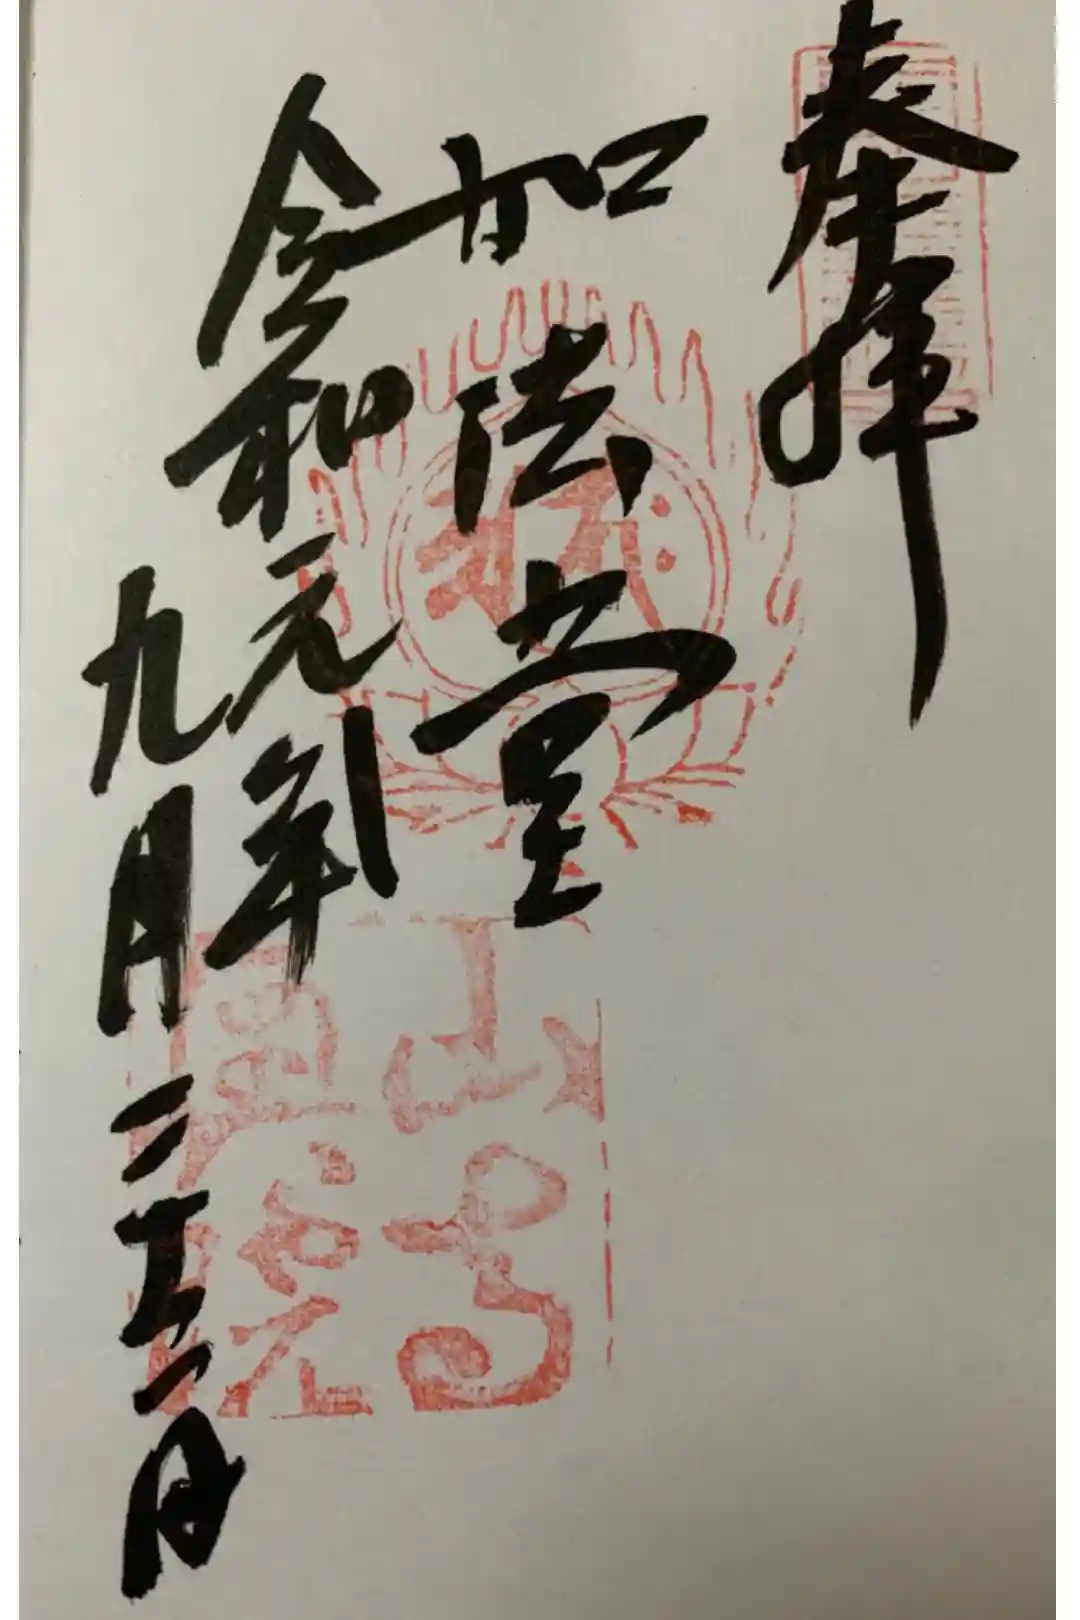 奉拝
如法堂
令和元年
九月二十二日